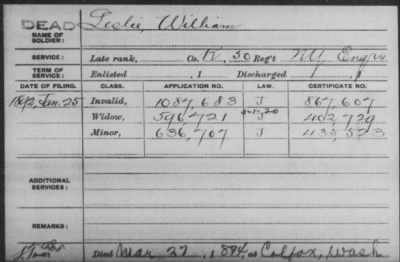 DEAD
NAME OF SOLDIER:
Leslie, William
SERVICE:
Late rank, Co. K, 50 Reg't NY Engrs
TERM OF SERVICE:
Enlisted , 1 Discharged , 1
DATE OF FILING. CLASS. APPLICATION NO. LAW. CERTIFICATE NO.
1892, Jan. 25 Invalid, 1087,683 J 867,607
Widow, 596,721 J 402,729
Minor, 636,707 J 435,523
ADDITIONAL SERVICES:
REMARKS:
Died Mar 27, 1894, at Colfax, Wash